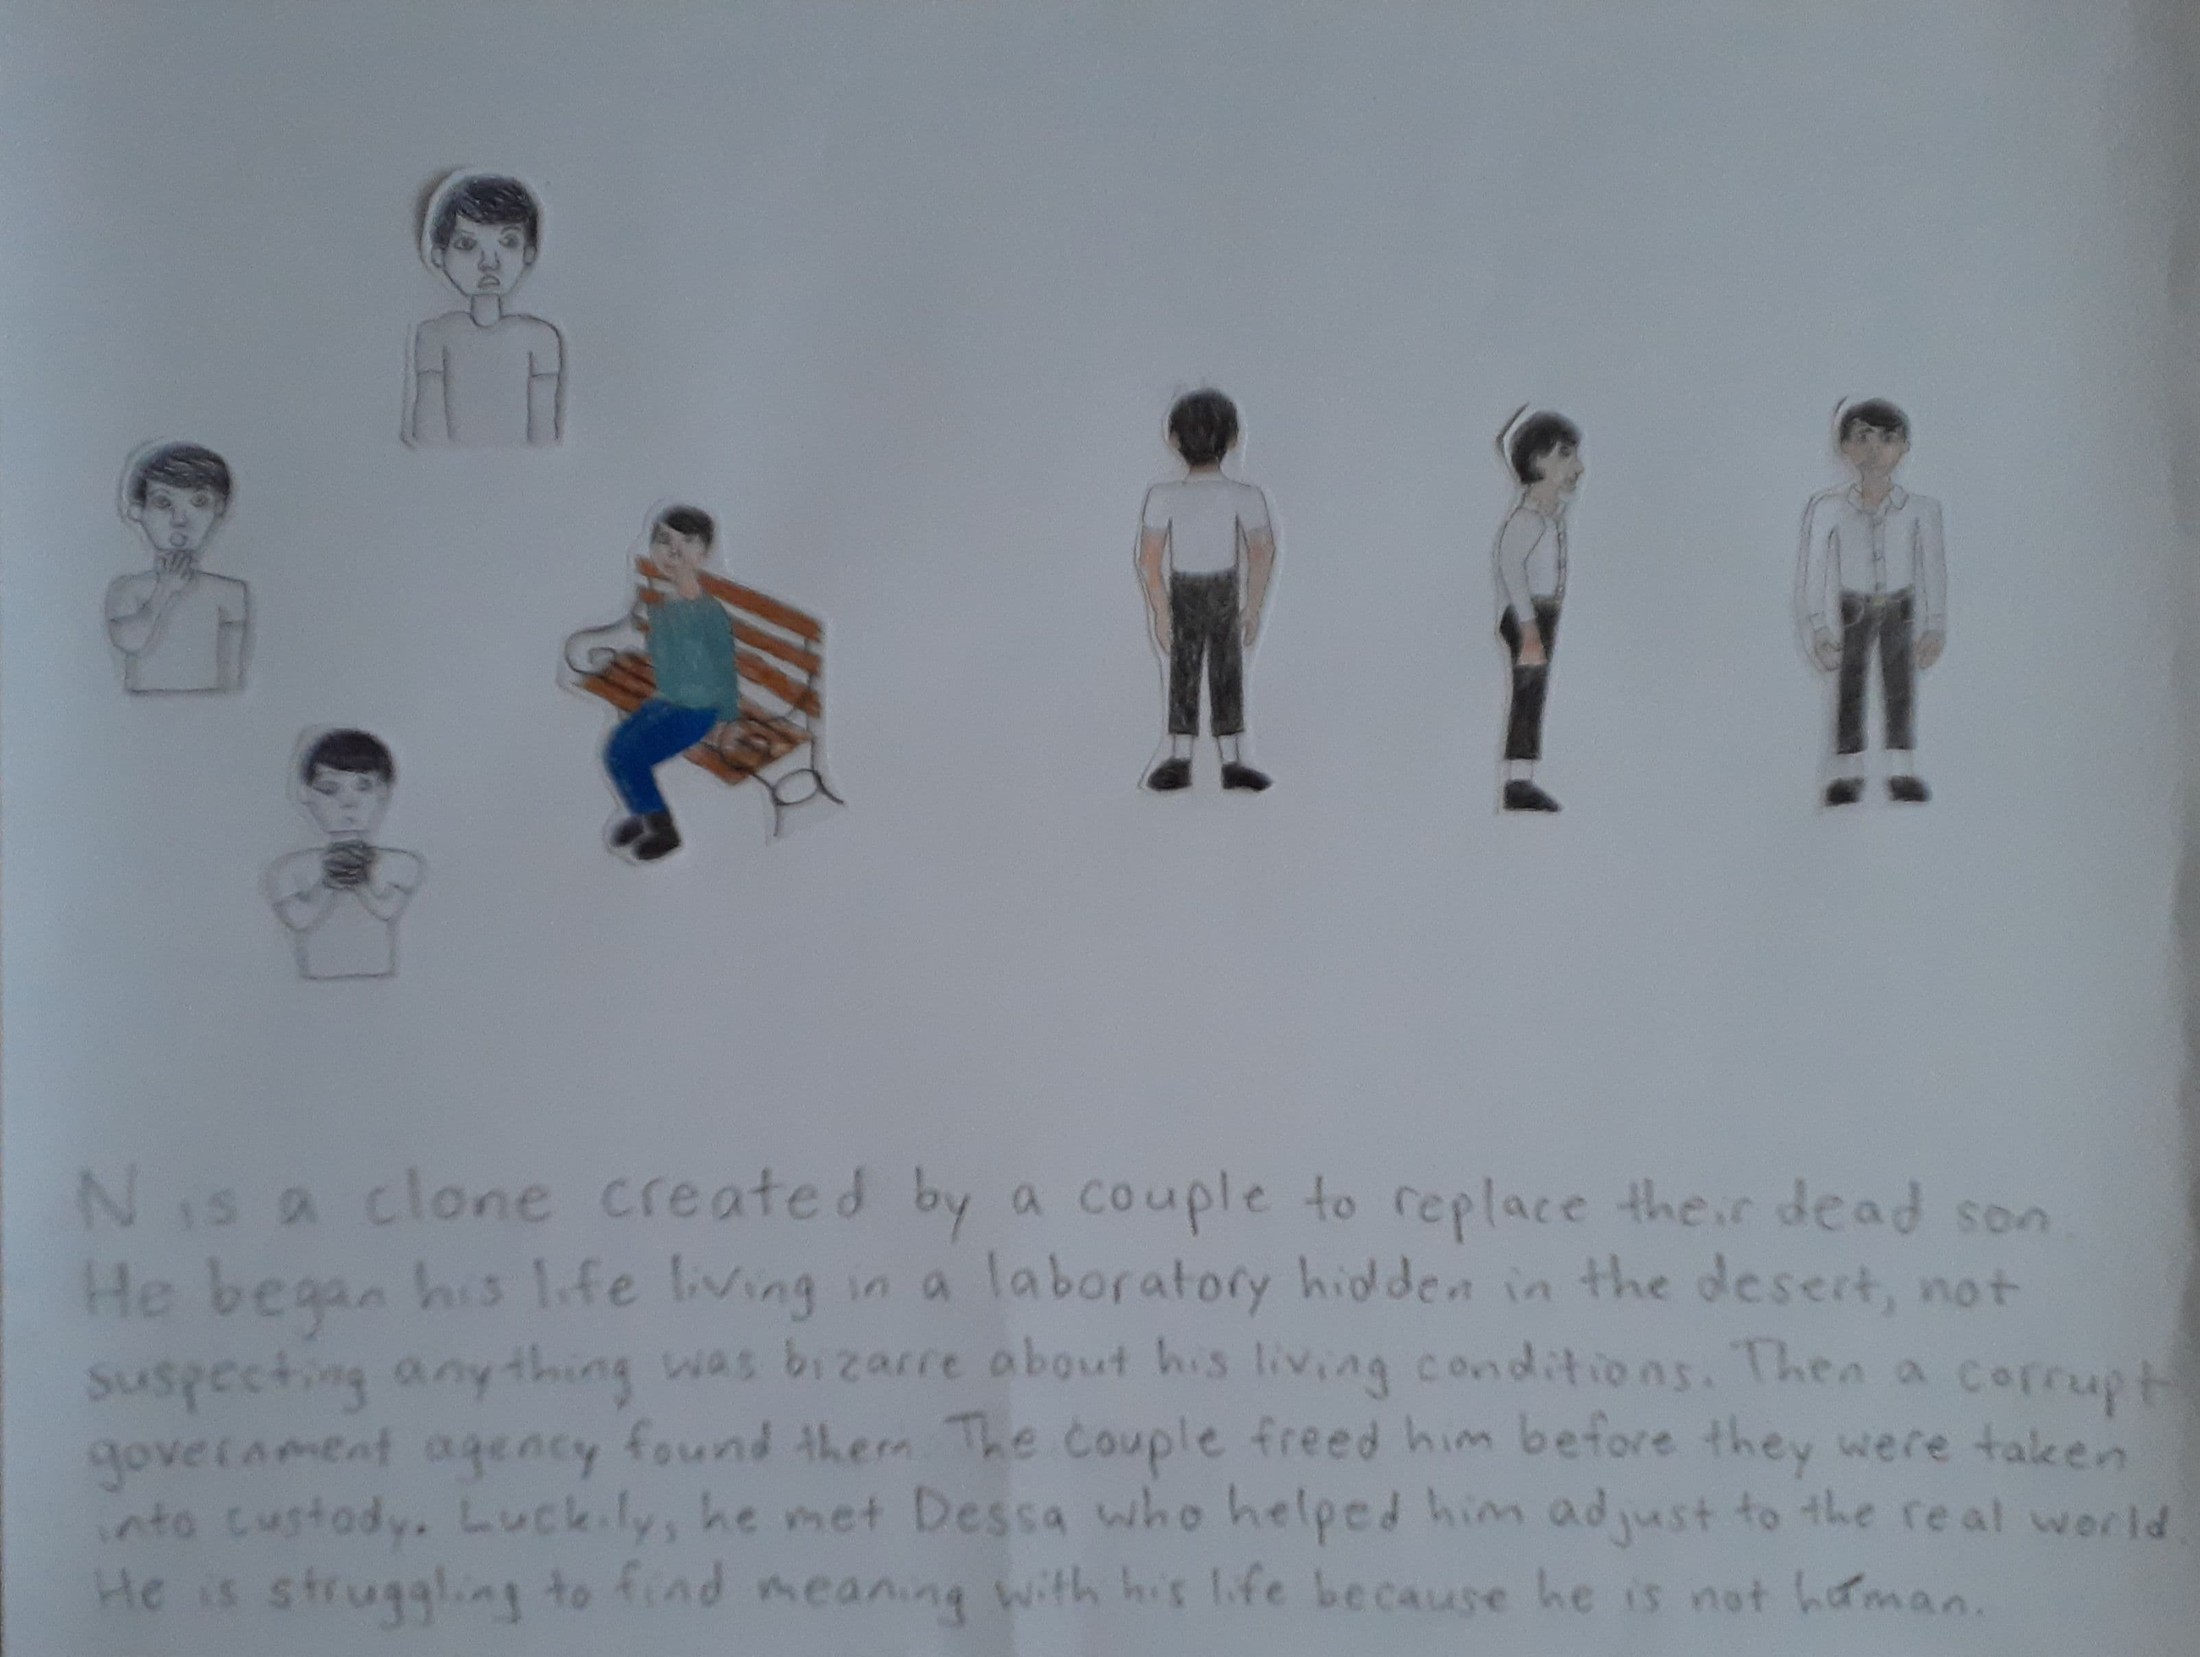 N is a clone created by a couple to replace their dead son.
He began his life living in a laboratory hidden in the desert, not
suspecting anything was bizarre about his living conditions. Then a corrupt
government agency found them. The couple freed him before they were taken
into custody. Luckily, he met Dessa who helped him adjust to the real world.
He is struggling to find meaning with his life because he is not human.